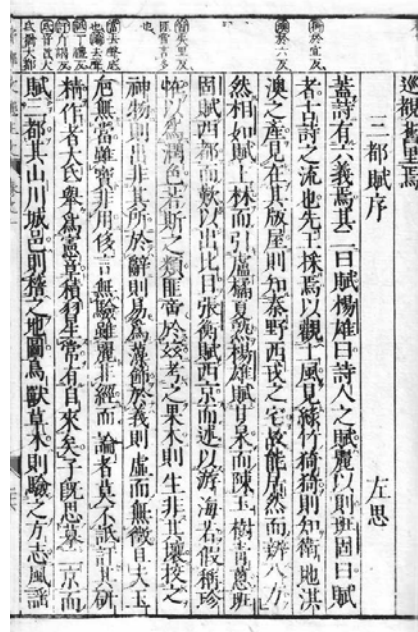 三都賦序　左思
蓋詩有六義焉其二曰賦楊雄曰詩人之賦麗以則班固曰賦
者古詩之流也先王採焉以觀土風見綠竹猗猗則知衛地淇
澳之產見在其版屋則知秦野西戎之宅故能居然而辨八方
然相如賦上林而引盧橘夏熟楊雄賦甘泉而陳玉樹青蔥班
固賦西都而歎以出比目張衡賦西京而述以游海若假稱珍
怪以為潤色若斯之類匪啻於茲考之果木則生非其壤校之
神物則出非其所於辭則易為藻飾於義則虛而無徵且夫玉
卮無當雖寶非用侈言無驗雖麗非經而論者莫不詆訐其研
精作者大氐舉為憲章積習生常有自來矣予既思摹二京而
賦三都其山川城邑則稽之地圖鳥獸草木則驗之方志風謠
猗於宜反
澳於六反